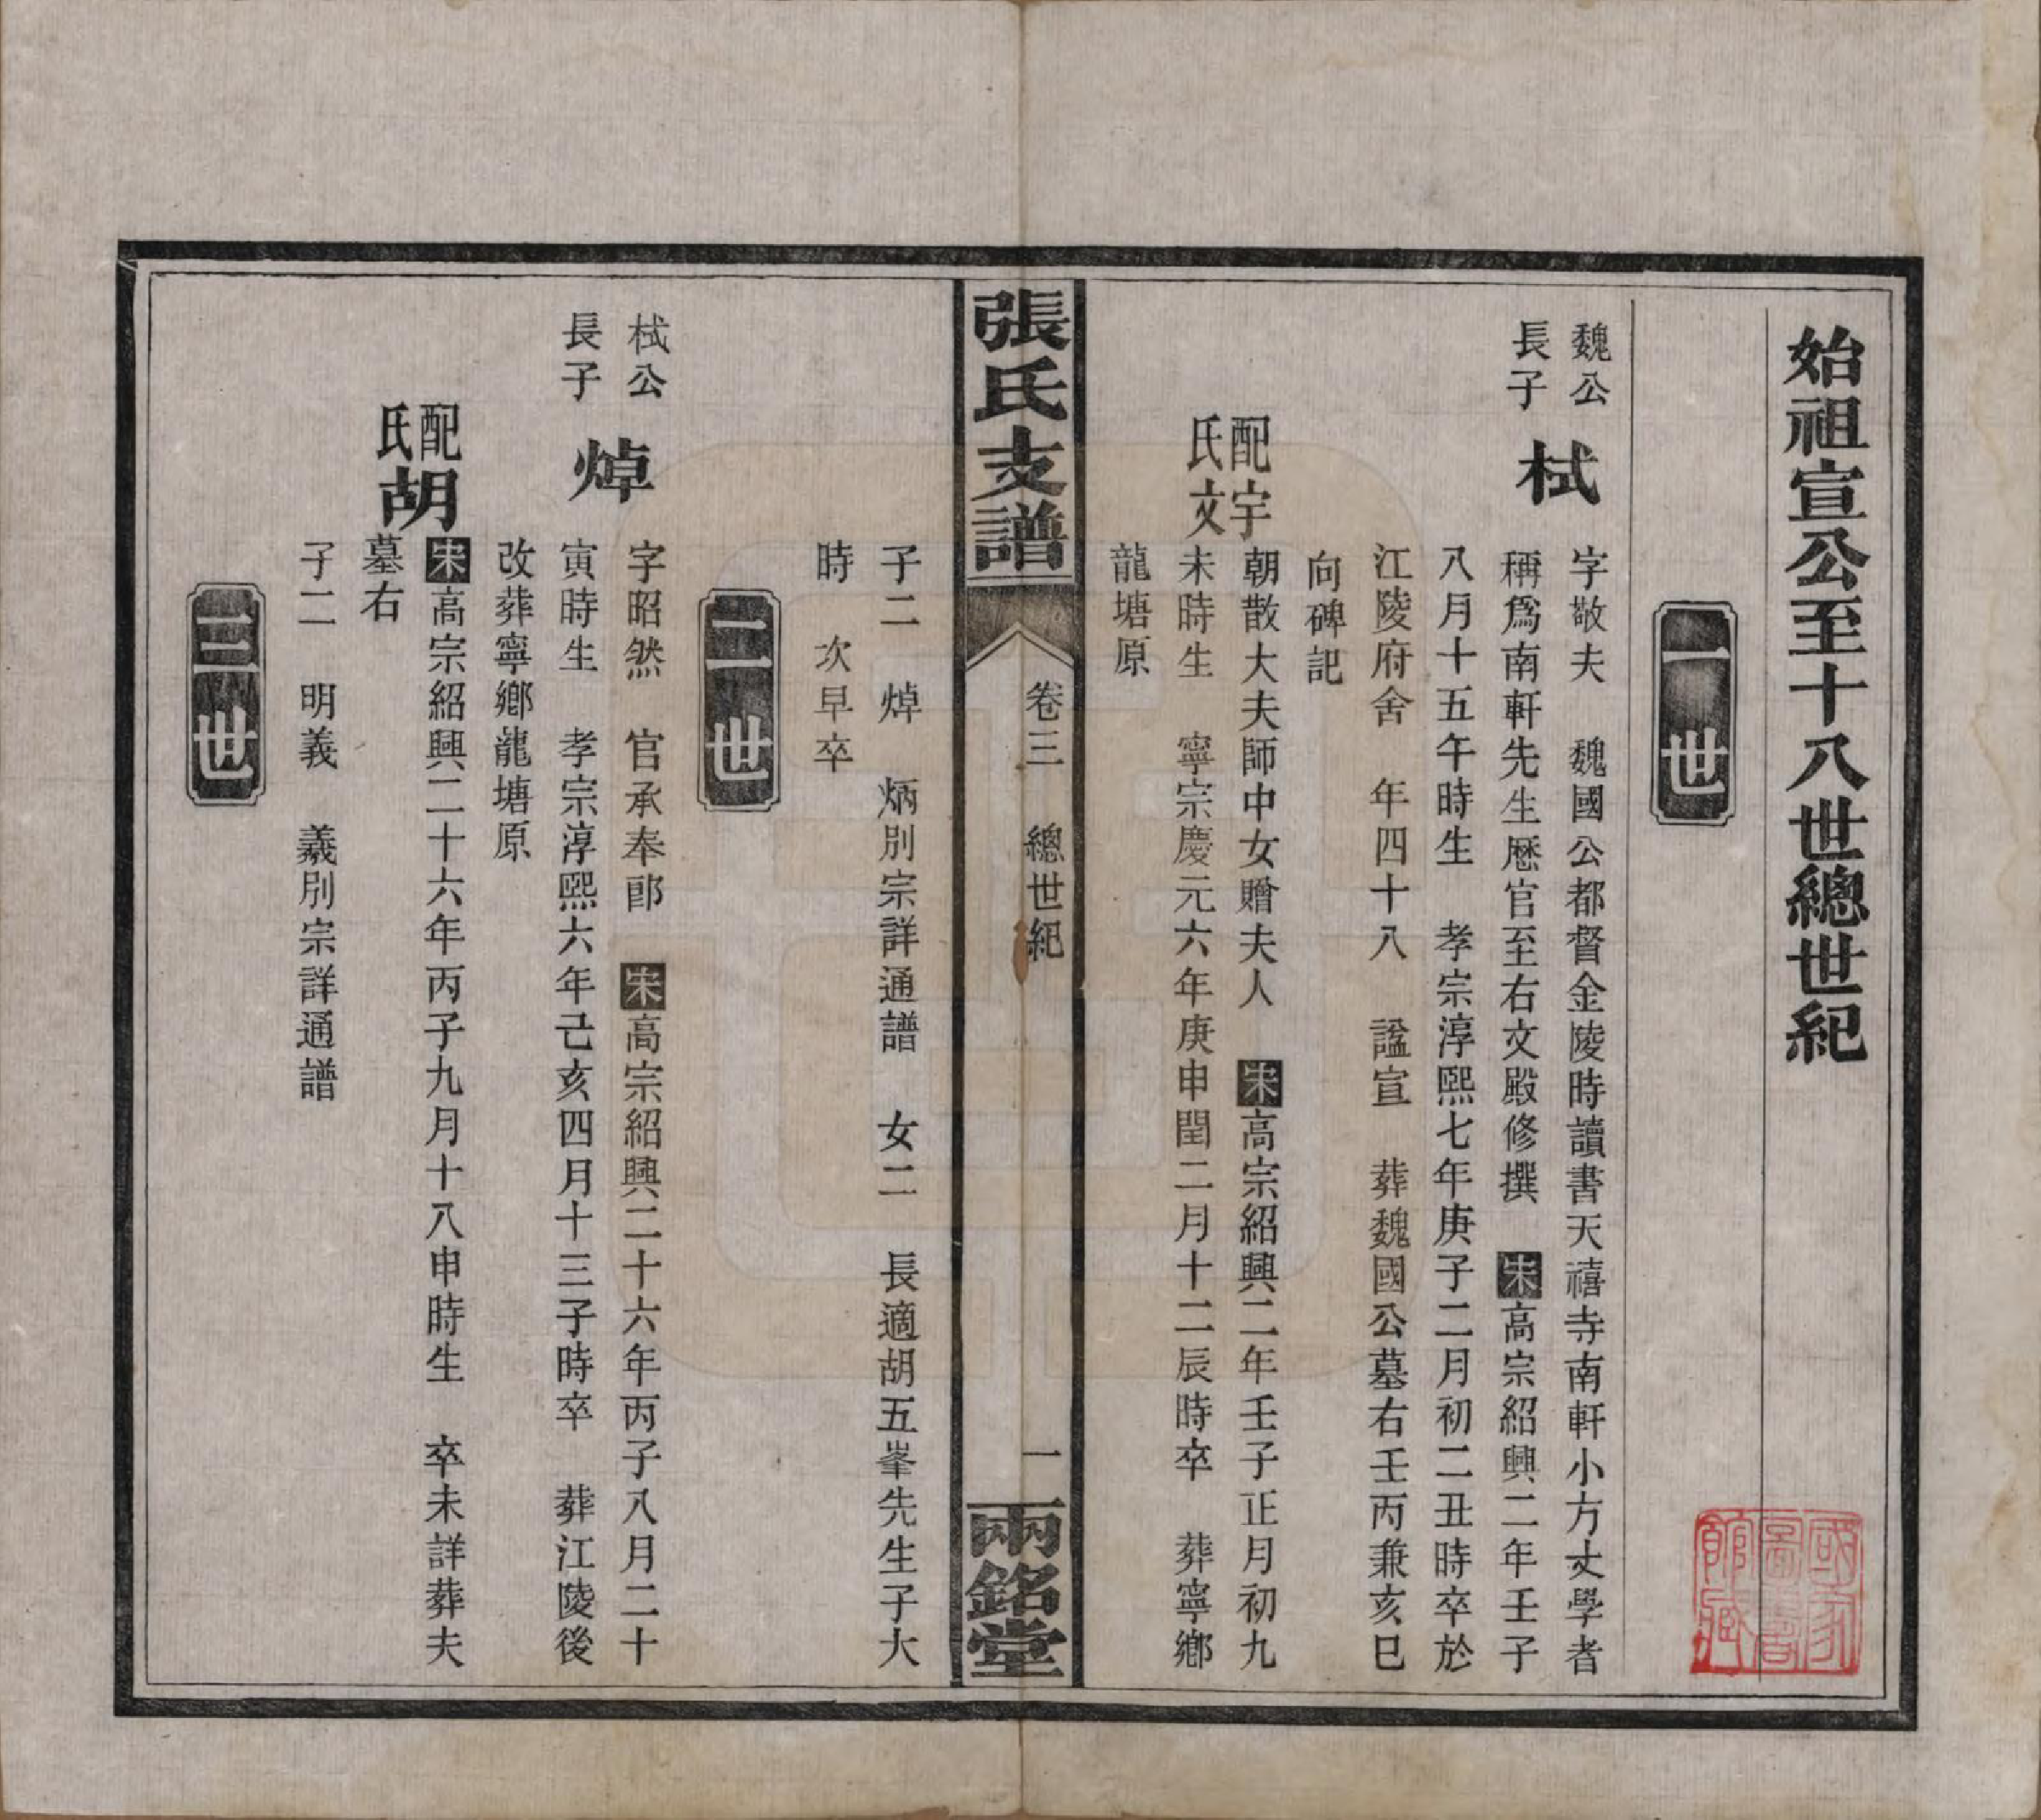 始祖宣公至十八世總世紀
一世
魏公
長子
栻
字敬夫　魏國公都督金陵時讀書天禧寺南軒小方丈學者
稱爲南軒先生歷官至右文殿修撰　宋高宗紹興二年壬子
八月十五午時生　孝宗淳熙七年庚子二月初二丑時卒於
江陵府舍　年四十八　諡宣　葬魏國公墓右壬丙兼亥巳
向碑記
配宇
氏文
朝散大夫師中女贈夫人　宋高宗紹興二年壬子正月初九
未時生　寧宗慶元六年庚申閏二月十二辰時卒　葬寧鄉
龍塘原
張氏支譜
卷三　總世紀
一
兩銘堂
子二　焯　炳別宗詳通譜　女二　長適胡五峯先生子大
時　次早卒
二世
栻公
長子
焯
字昭然　官承奉郎　宋高宗紹興二十六年丙子八月二十
寅時生　孝宗淳熙六年己亥四月十三子時卒　葬江陵後
改葬寧鄉龍塘原
配
氏
胡
宋高宗紹興二十六年丙子九月十八申時生　卒未詳葬夫
墓右
子二　明義　羲別宗詳通譜
三世
國家
圖書
館藏